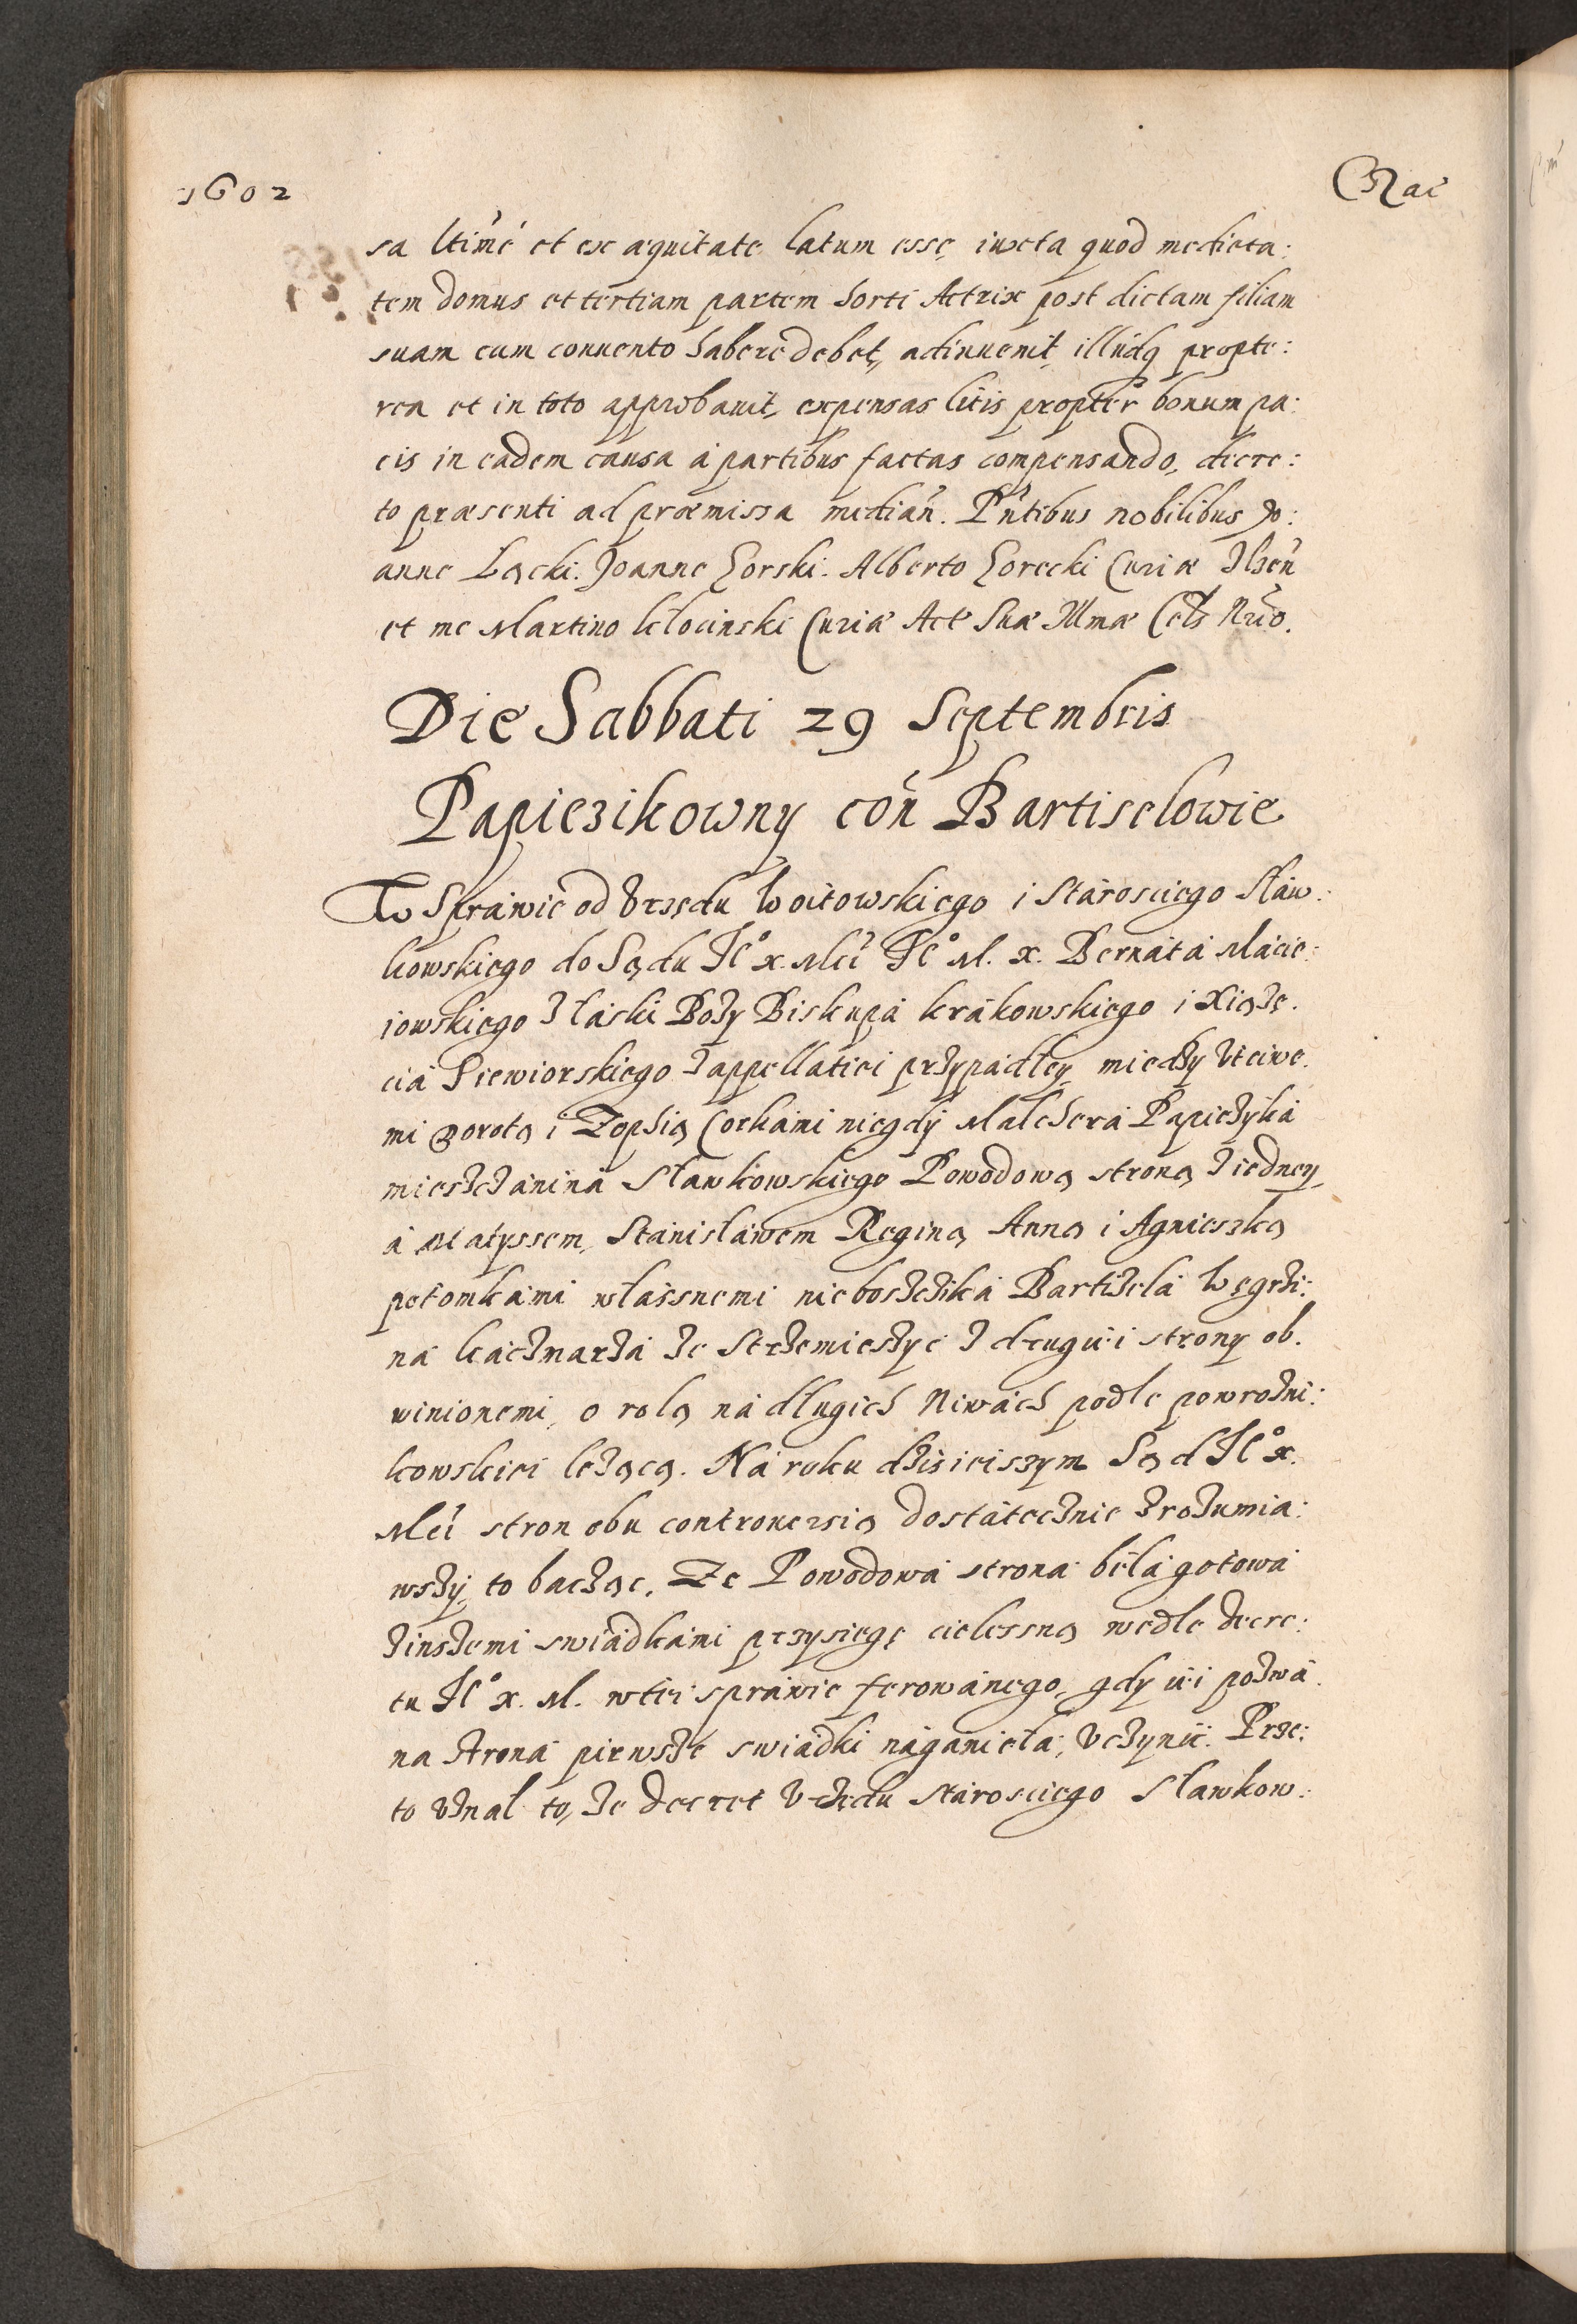 1602
Mai
sa ltime et ex æquitate latum esse, iuxta quod medieta:
tem domus et tertiam partem horti Actrix post dictam filiam
suam cum conuento habere debet, adinuenit, illudq propte:
rea et in toto approbauit, expensas litis propter bonum pa:
cis in eadem causa à partibus factas compensando, decre:
to præsenti ad præmissa median̄. Pn̄tibus nobilibus Jo:
anne Łącki. Joanne Gorski. Alberto Gorecki Curiæ Ilzen̄
et me Martino Kłocinski Curiæ Act Suæ Illmæ Cels Nrio.
Die Sabbati 29 Septembris
Papiezikowny con̄ Bartiselowie
W Spráwie od Vrzędu Woitowskiego i Stárosciego Sław:
kowskiego do Sądu Je° x. Mci Je° M. x. Bernátá Mácie:
iowskiego z łáski Boży Biskupá krákowskiego i Xiąże:
ciá Siewiorskiego z appellatiei przypádłey, między Vtciwe:
mi Dorotą i Zophią Corkámi niegdy Málcherá Papieżyká
mieszczániná Sławkowskiego Powodową stroną z iedney,
á Matyssem, Stánisłáwem Reginą Anną i Agnieszką
potomkámi własnemi nieboszczika Bartizelá Węgrzi:
ná káczmarzá ze Strzemieszyc z drugiei strony ob:
winionemi, o rolą ná długich Niwách podle powrozni:
kowskiei leżącą. Ná roku dzisieiszym Sąd Je° x.
Mci stron obu controuersią dostátecznie zrozumia:
wszy, to bacząc, Ze Powodowá stroná béłá gotowá
zinszemi swiádkámi przysięgę cielesną wedle decre:
tu Je° x. M. wtei spráwie ferowánego, gdy iei pozwá:
na stroná pirwsze swiádki nágániełá, vczynić. Prze:
to vznał to, ze decret vrzędu stárosciego Sławkow: